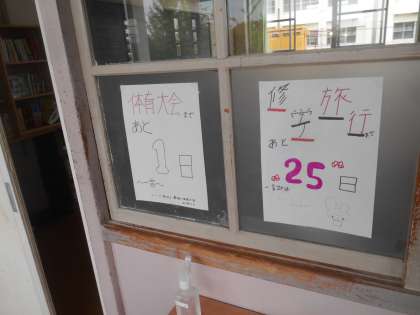 体育大会まで
あと
1日
修学旅行まで
あと
25日